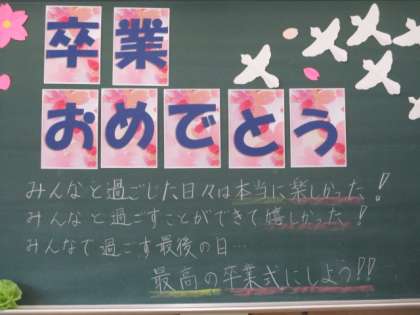 卒業
おめでとう
みんなと過ごした日々は本当に楽しかった！
みんなと過ごすことができて嬉しかった！
みんなで過ごす最後の日…
最高の卒業式にしよう!!